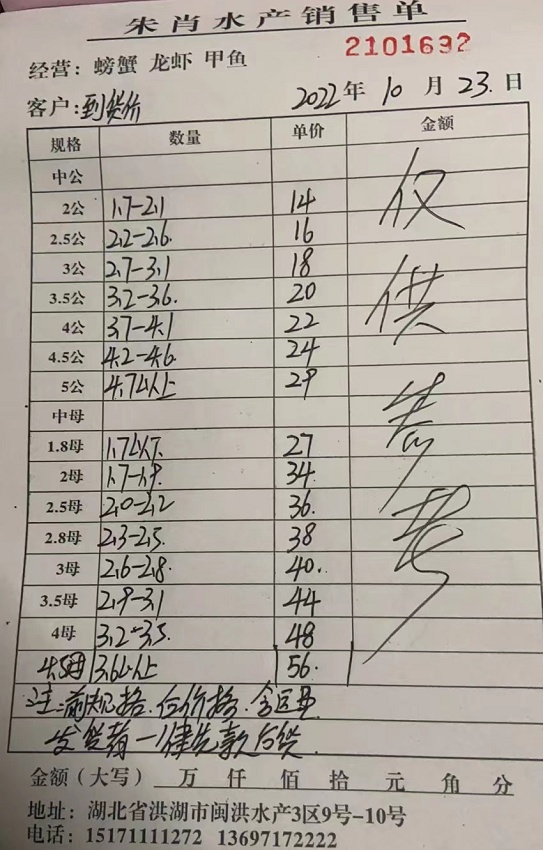 朱肖水产销售单
经营：螃蟹 龙虾 甲鱼 2101692
客户：到货价 2022年 10月 23日
规格 数量 单价 金额
中公
2公 1.7-2.1 14
2.5公 2.2-2.6 16
3公 2.7-3.1 18
3.5公 3.2-3.6 20
4公 3.7-4.1 22
4.5公 4.2-4.6 24
5公 4.7以上 29
中母
1.8母 1.7以下 27
2母 1.7-1.9 34
2.5母 2.0-2.2 36
2.8母 2.3-2.5 38
3母 2.6-2.8 40
3.5母 2.9-3.1 44
4母 3.2-3.5 48
4.5母 3.6以上 56
仅供参考
注：前规格.后价格.全区
发货前一律先款后货
金额（大写） 万 仟 佰 拾 元 角 分
地址：湖北省洪湖市闽洪水产3区9号-10号
电话：15171111272 13697172222